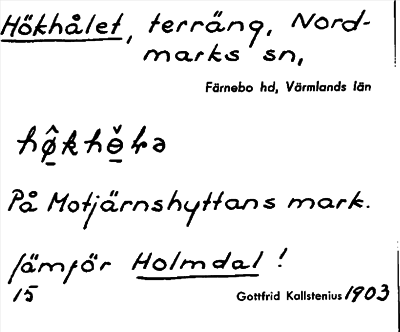 Hökhålet, terräng, Nord-
marks sn,
Färnebo hd, Värmlands län
På Motjärnshyttans mark.
Jämför Holmdal !
15 Gottfrid Kallstenius 1903